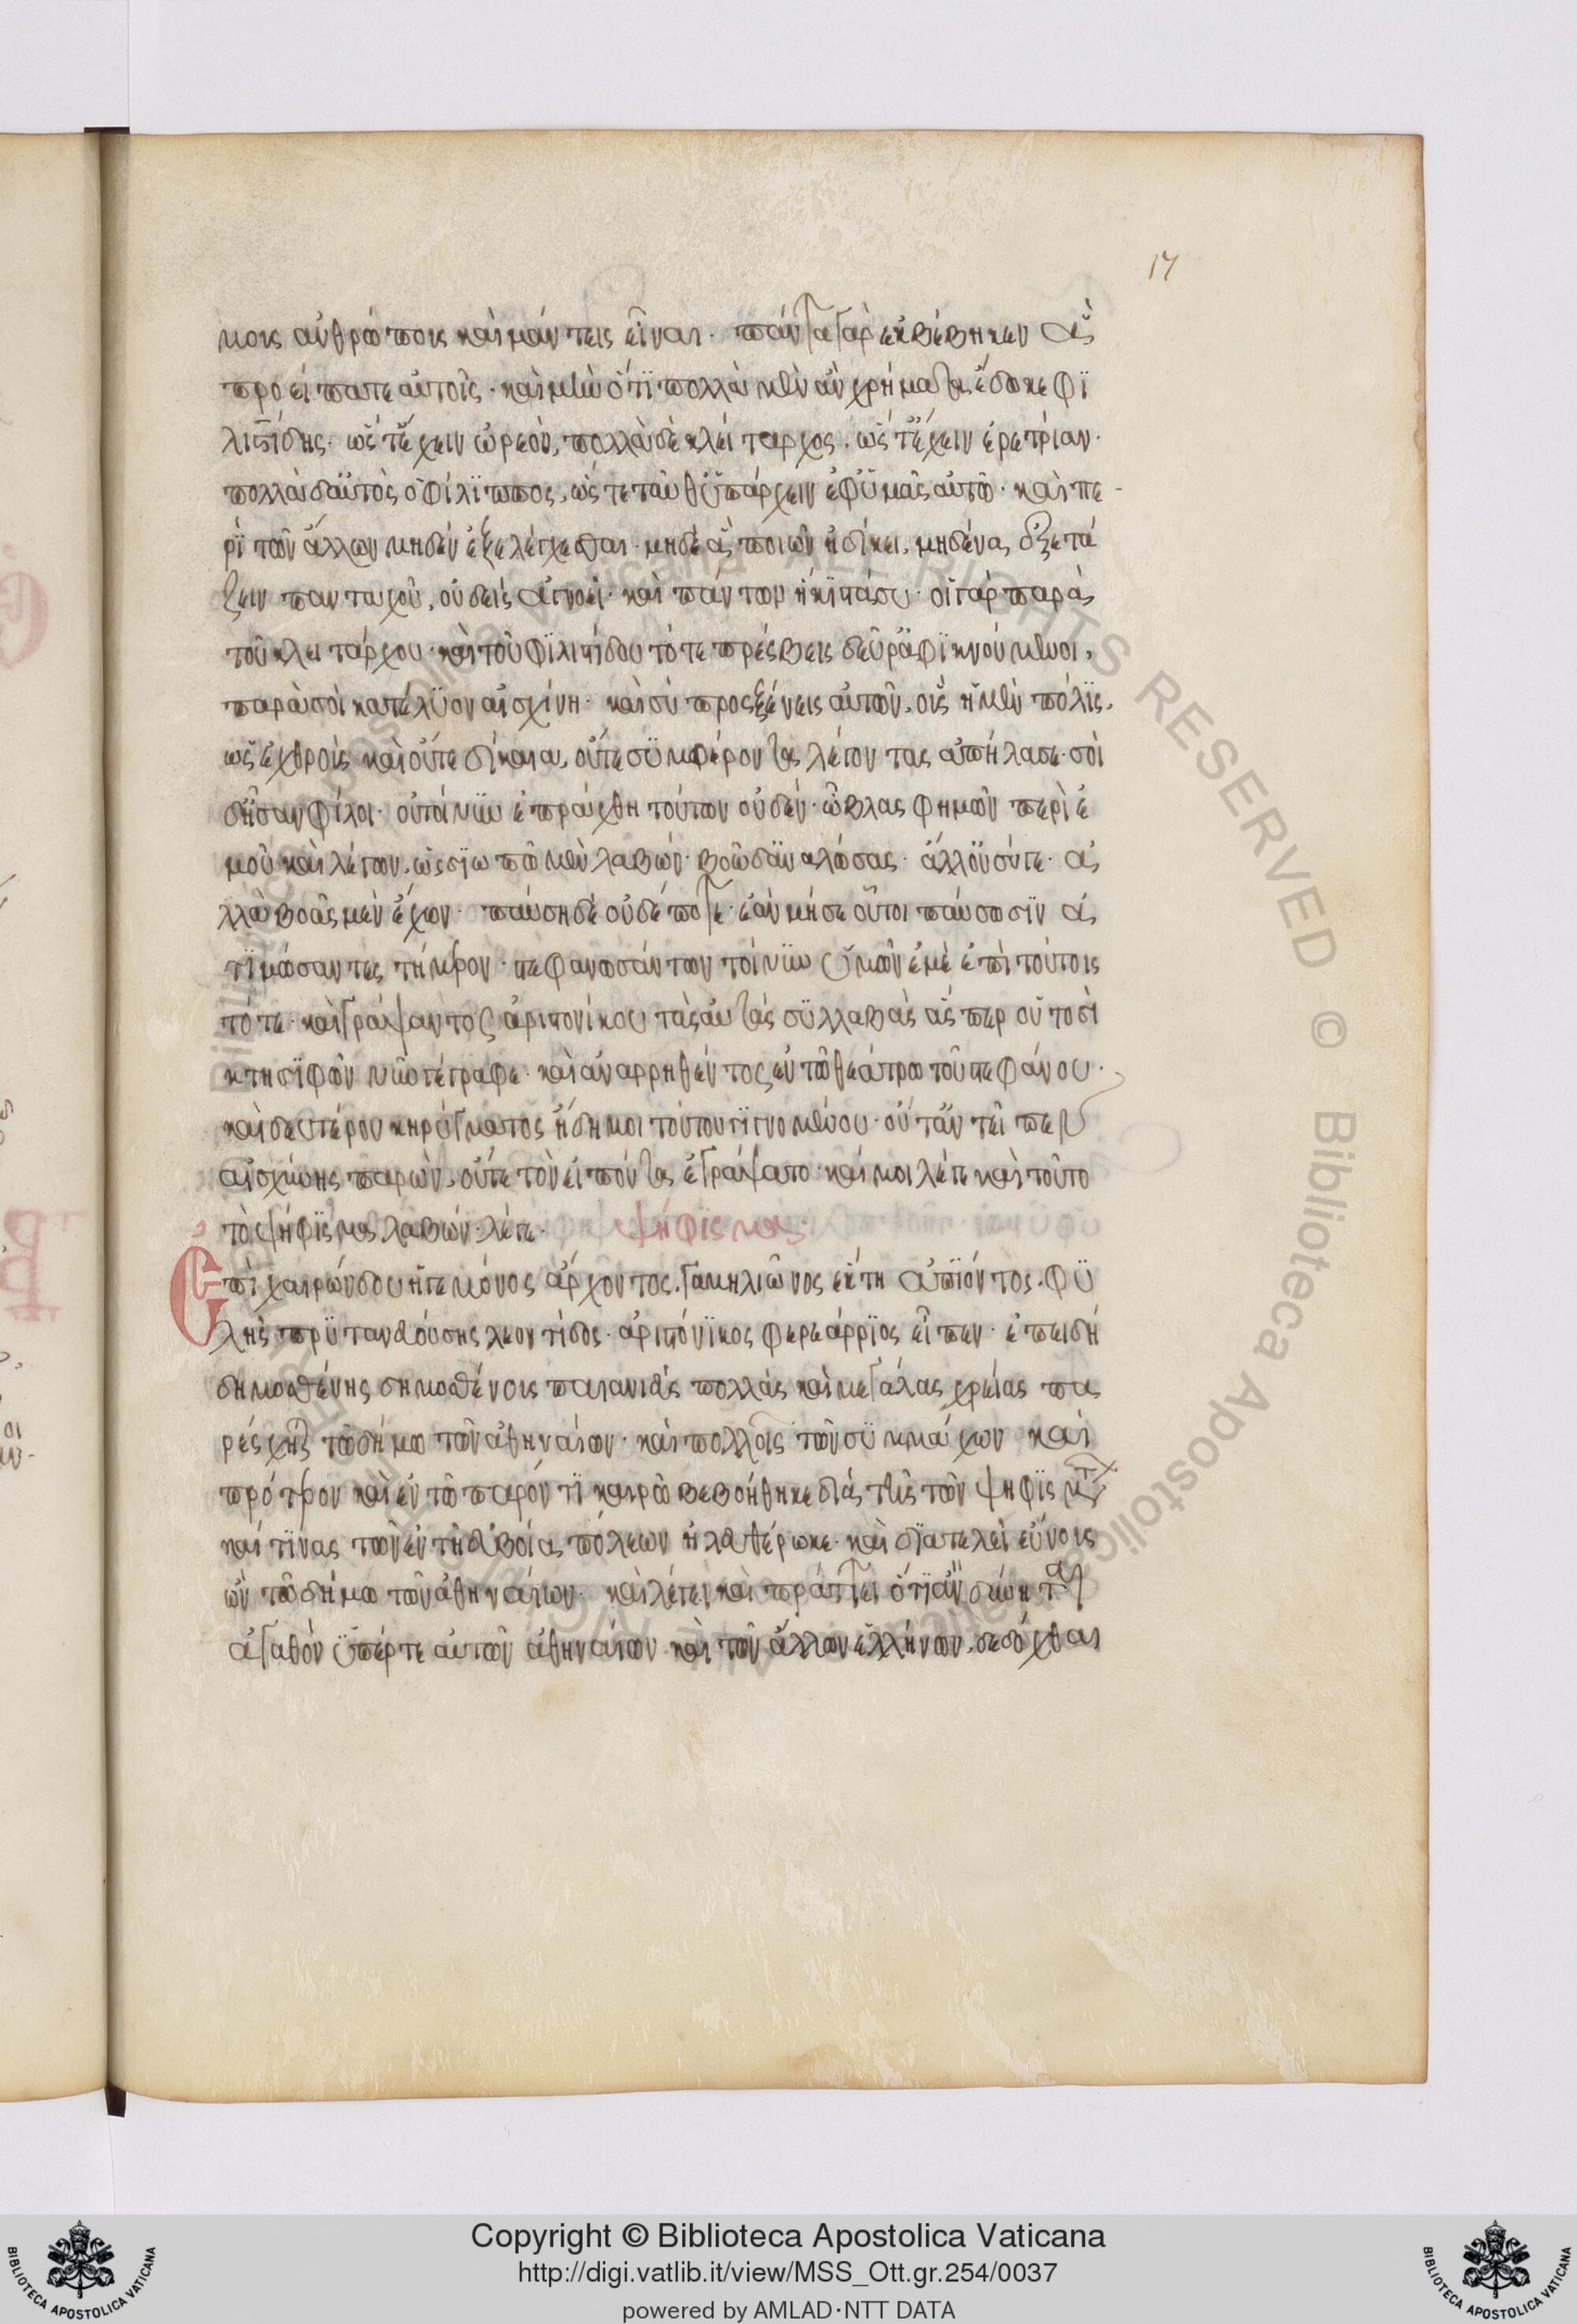 17
μοις ἀνθρώποις καὶ μάντεις εἶναι· πάντα γὰρ ἐκβέβηκεν ἃ
προείπατε αὐτοῖς· καὶ μὴν ὅτι πολλὰ μὲν ἂν χρήματα ἔδωκε φι
λιπίδης· ὥστ' ἔχειν ὠρεὸν, πολλὰ δὲ κλείταρχος, ὥστ' ἔχειν ἐρετρίαν·
πολλὰ δ' αὐτὸς ὁ φίλιππος, ὥστε ταῦθ' ὑπάρχειν ἐφ' ὑμᾶς αὐτῷ· καὶ πε-
ρὶ τῶν ἄλλων μηδὲν ἐξελέγχεσθαι· μηδὲ ἃ ποιῶν ἠδίκει, μηδένα ἐξετά
ζειν πανταχοῦ, οὐδεὶς ἀγνοεῖ· καὶ πάντων ἥκιστα σύ· οἱ γὰρ παρὰ
τοῦ κλειτάρχου καὶ τοῦ φιλιστίδου τότε πρέσβεις δεῦρ' ἀφικνούμενοι,
παρὰ σοὶ κατέλυον αἰσχίνη· καὶ σὺ προὐξένεις αὐτῶν, οὓς ἡ μὲν πόλις,
ὡς ἐχθροὺς καὶ οὔτε δίκαια, οὔτε συμφέροντα λέγοντας ἀπήλασε· σοὶ
δ' ἦσαν φίλοι· οὐ τοίνυν ἐπράχθη τούτων οὐδέν· ὦ βλασφημῶν περὶ ἐ
μοῦ καὶ λέγων, ὡς σιωπῶ μὲν λαβών· βοῶ δ' ἀναλώσας· ἀλλ' οὐ σύγε· ἀ
λλὰ βοᾶς μὲν ἔχων· παύσῃ δὲ οὐδέποτε· ἐὰν μή σε οὗτοι παύσωσιν ἀ
τιμώσαντες τήμερον· στεφανωσάντων τοίνυν ὑμῶν ἐμὲ ἐπὶ τούτοις
τότε· καὶ γράψαντος ἀριστονίκου τὰς αὐτὰς συλλαβὰς ἅσπερ οὑτοσὶ
κτησιφῶν νῦν γέγραφε· καὶ ἀναρρηθέντος ἐν τῷ θεάτρῳ τοῦ στεφάνου·
καὶ δευτέρου κηρύγματος ἤδη μοι τούτου γιγνομένου· οὔτ' ἀντεῖπεν
αἰσχίνης παρών, οὔτε τὸν εἰπόντα ἐγράψατο· καί μοι λέγε καὶ τοῦτο
τὸ ψήφισμα λαβών· λέγε· ψήφισμα·
Ἐπὶ χαιρώνδου ἡγεμόνος ἄρχοντος, γαμηλιῶνος ἕκτῃ ἀπιόντος· φυ
λῆς πρυτανευούσης λεοντίδος· ἀριστόνικος φρεάρριος εἶπεν· ἐπειδὴ
δημοσθένης δημοσθένους παιανιεὺς πολλὰς καὶ μεγάλας χρείας πα
ρέσχηται τῷ δήμῳ τῶν ἀθηναίων· καὶ πολλοῖς τῶν συμμάχων καὶ
πρότερον καὶ ἐν τῷ παρόντι καιρῷ βεβοήθηκε διὰ τῶν ψηφισμάτων
καί τινας τῶν ἐν τῇ εὐβοίᾳ πόλεων ἠλευθέρωκε· καὶ διατελεῖ εὔνους
ὢν τῷ δήμῳ τῶν ἀθηναίων· καὶ λέγει καὶ πράττει ὅτι ἂν δύνηται
ἀγαθὸν ὑπέρ τε αὐτῶν ἀθηναίων καὶ τῶν ἄλλων ἑλλήνων, δεδόχθαι
Biblioteca Apostolica Vaticana ALL RIGHTS RESERVED © Biblioteca Apostolica Vaticana
Copyright © Biblioteca Apostolica Vaticana
http://digi.vatlib.it/view/MSS_Ott.gr.254/0037
powered by AMLAD·NTT DATA
BIBLIOTECA APOSTOLICA VATICANA
BIBLIOTECA APOSTOLICA VATICANA